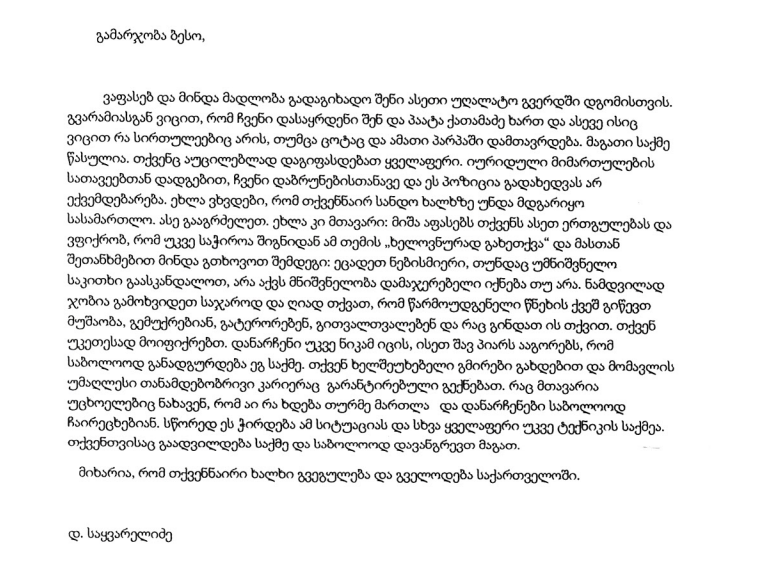 გამარჯობა ბესო,
ვაფასებ და მინდა მადლობა გადაგიხადო შენი ასეთი უღალატო გვერდში დგომისთვის.
გვარამიასგან ვიცით, რომ ჩვენი დასაყრდენი შენ და პაატა ქათამაძე ხართ და ასევე ისიც
ვიცით რა სირთულეებიც არის, თუმცა ცოტაც და ამათი პარპაში დამთავრდება. მაგათი საქმე
წასულია. თქვენც აუცილებლად დაგიფასდებათ ყველაფერი. იურიდული მიმართულების
სათავეებთან დადგებით, ჩვენი დაბრუნებისთანავე და ეს პოზიცია გადახედვას არ
ექვემდებარება. ეხლა ვხვდები, რომ თქვენნაირ სანდო ხალხზე უნდა მდგარიყო
სასამართლო. ასე გააგრძელეთ. ეხლა კი მთავარი: მიშა აფასებს თქვენს ასეთ ერთგულებას და
ვფიქრობ, რომ უკვე საჭიროა შიგნიდან ამ თემის „ხელოვნურად გახეთქვა“ და მასთან
შეთანხმებით მინდა გთხოვოთ შემდეგი: ეცადეთ ნებისმიერი, თუნდაც უმნიშვნელო
საკითხი გაასკანდალოთ, არა აქვს მნიშვნელობა დამაჯერებელი იქნება თუ არა. ნამდვილად
ჯობია გამოხვიდეთ საჯაროდ და ღიად თქვათ, რომ წარმოუდგენელი წნეხის ქვეშ გიწევთ
მუშაობა, გემუქრებიან, გატერორებენ, გითვალთვალებენ და რაც გინდათ ის თქვით. თქვენ
უკეთესად მოიფიქრებთ. დანარჩენი უკვე ნიკამ იცის, ისეთ შავ პიარს ააგორებს, რომ
საბოლოოდ განადგურდება ეგ საქმე. თქვენ ხელშეუხებელი გმირები გახდებით და მომავლის
უმაღლესი თანამდებობრივი კარიერაც გარანტირებული გექნებათ. რაც მთავარია
უცხოელებიც ნახავენ, რომ აი რა ხდება თურმე მართლა და დანარჩენები საბოლოოდ
ჩაირეცხებიან. სწორედ ეს ჭირდება ამ სიტუაციას და სხვა ყველაფერი უკვე ტექნიკის საქმეა.
თქვენთვისაც გაადვილდება საქმე და საბოლოოდ დავანგრევთ მაგათ.
მიხარია, რომ თქვენნაირი ხალხი გვეგულება და გველოდება საქართველოში.
დ. საყვარელიძე